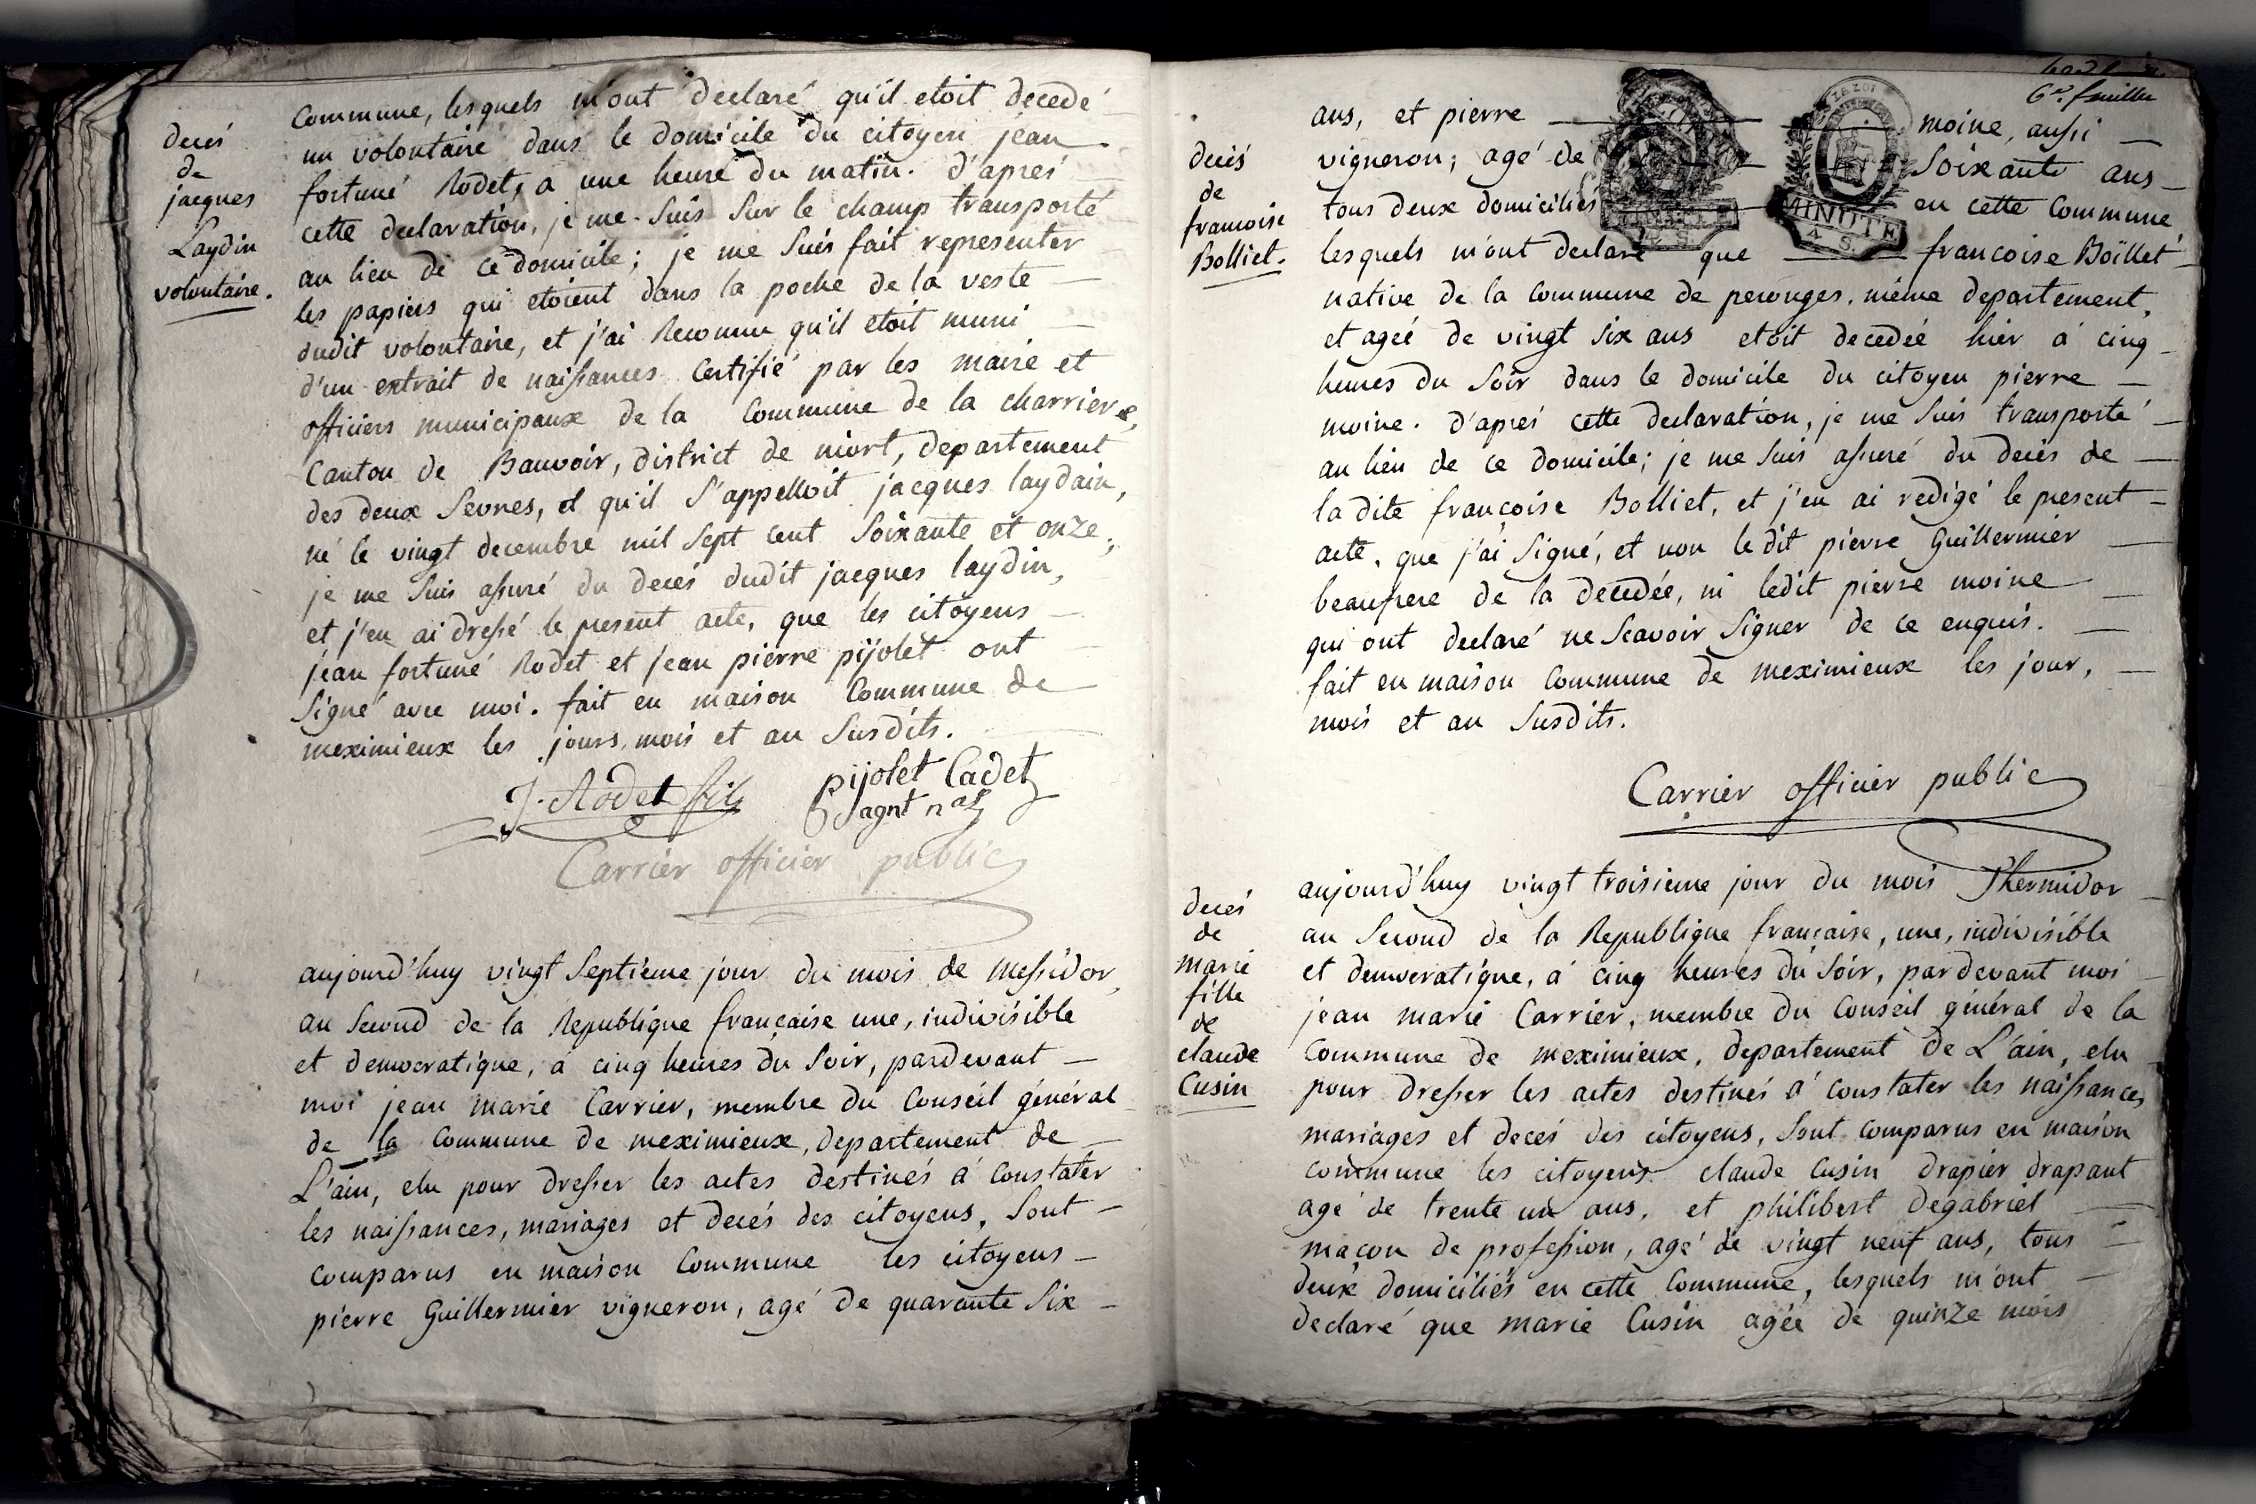 decés
de
jacques
Laydin
volontaire.
commune, lesquels m'ont declaré qu'il etoit decedé
un volontaire dans le domicile du citoyen jean
fortuné Rodet, a une heure du matin. d'aprés
cette declaration, je me suis sur le champ transporté
au lieu de ce domicile; je me suis fait representer
les papiers qui etoient dans la poche de la veste
dudit volontaire, et j'ai Reconnu qu'il etoit muni
d'un extrait de naissances certifié par les maire et
officiers municipaux de la commune de la charriere,
Canton de Bauvoir, district de niort, departement
des deux Sevres, et qu'il s'appelloit jacques laydain,
né le vingt decembre mil sept cent soixante et onze;
je me suis assuré du decés dudit jacques laydin,
et j'en ai dressé le present acte, que les citoyens
jean fortuné Rodet et jean pierre pijolet ont
signé avec moi. fait en maison commune de
meximieux les jours, mois et an susdits.
J. Rodet fils
pijolet Cadet
agnt nal
Carrier officier public
aujourd'huy vingt septieme jour du mois de messidor,
an second de la Republique française une, indivisible
et democratique, à cinq heures du soir, pardevant
moi jean marie Carrier, membre du conseil général
de la commune de meximieux, departement de
L'ain, elu pour dresser les actes destinés à constater
les naissances, mariages et decés des citoyens, sont
comparus en maison commune les citoyens
pierre Guillermier vigneron, agé de quarante six
6e. feuille
MINUTE
4. S.
decés
de
francoise
Bolliet.
ans, et pierre moine, aussi
vigneron; agé de soixante ans
tous deux domiciliés en cette commune,
lesquels m'ont declaré que francoise Boillet
native de la commune de perouges, même departement,
et ageé de vingt six ans etoit decedeé hier à cinq
heures du soir dans le domicile du citoyen pierre
moine. d'aprés cette declaration, je me suis transporté
au lieu de ce domicile; je me suis assuré du decés de
la dite françoise Bolliet, et j'en ai redigé le present
acte, que j'ai signé, et non le dit pierre Guillermier
beaupere de la decedée, ni ledit pierre moine
qui ont declaré ne scavoir signer de ce enquis.
fait en maison commune de meximieux les jour,
mois et an susdits.
Carrier officier public
decés
de
marie
fille
de
claude
Cusin
aujourd'huy vingt troisieme jour du mois Thermidor
an second de la Republique française, une, indivisible
et democratique, à cinq heures du soir, pardevant moi
jean marie Carrier, membre du conseil général de la
commune de meximieux, departement de L'ain, elu
pour dresser les actes destinés à constater les naissances,
mariages et decés des citoyens, sont comparus en maison
commune les citoyens claude Cusin drapier drapant
agé de trente un ans, et philibert degabriel
maçon de profession, agé de vingt neuf ans, tous
deux domiciliés en cette commune, lesquels m'ont
declaré que marie Cusin agée de quinze mois